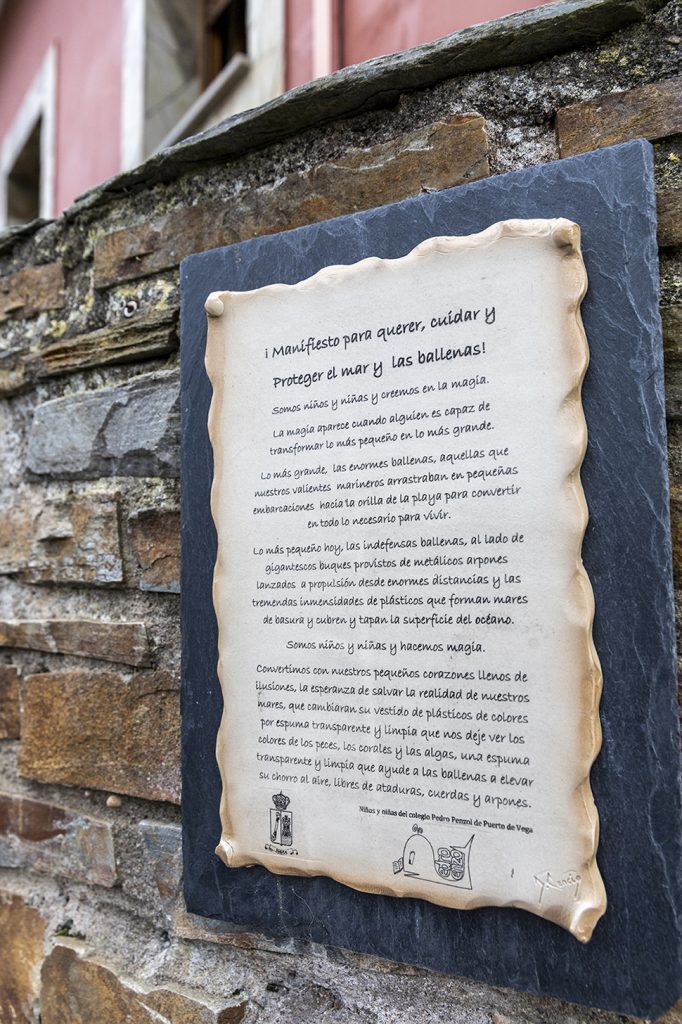 ¡ Manifiesto para querer, cuidar y
Proteger el mar y las ballenas!
Somos niños y niñas y creemos en la magia.
La magia aparece cuando alguien es capaz de
transformar lo más pequeño en lo más grande.
Lo más grande, las enormes ballenas, aquellas que
nuestros valientes marineros arrastraban en pequeñas
embarcaciones hacia la orilla de la playa para convertir
en todo lo necesario para vivir.
Lo más pequeño hoy, las indefensas ballenas, al lado de
gigantescos buques provistos de metálicos arpones
lanzados a propulsión desde enormes distancias y las
tremendas inmensidades de plásticos que forman mares
de basura y cubren y tapan la superficie del océano.
Somos niños y niñas y hacemos magia.
Convertimos con nuestros pequeños corazones llenos de
ilusiones, la esperanza de salvar la realidad de nuestros
mares, que cambiaran su vestido de plásticos de colores
por espuma transparente y limpia que nos deje ver los
colores de los peces, los corales y las algas, una espuma
transparente y limpia que ayude a las ballenas a elevar
su chorro al aire, libres de ataduras, cuerdas y arpones.
Niños y niñas del colegio Pedro Penzol de Puerto de Vega